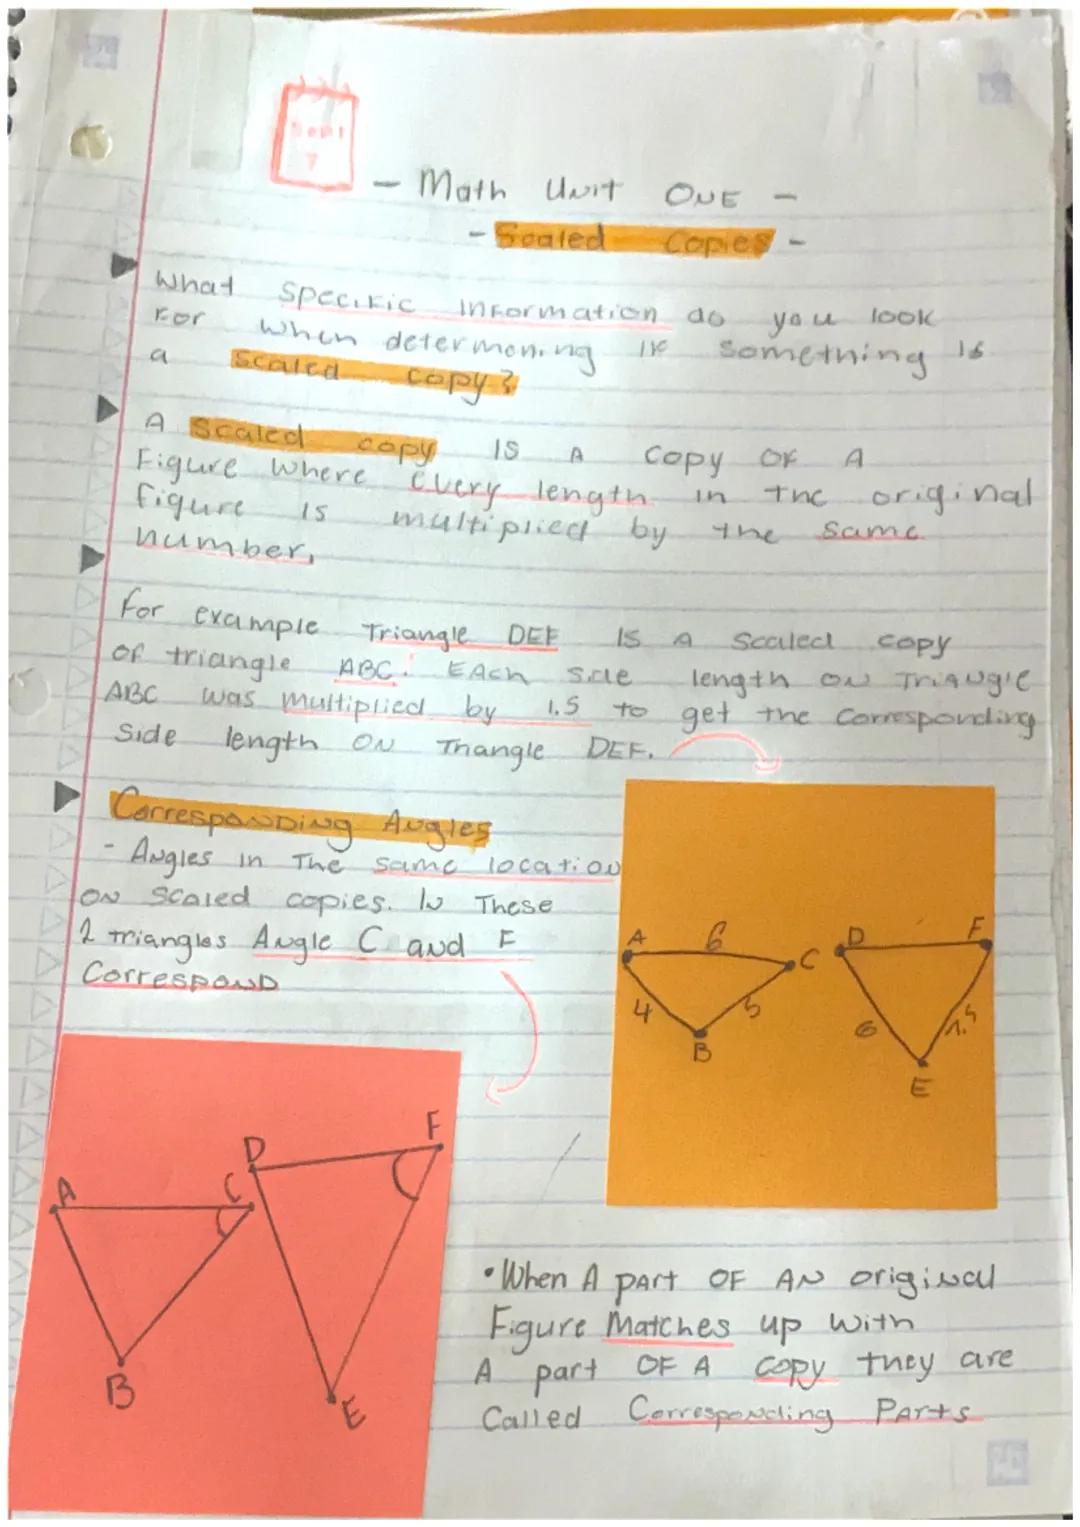 Sept
7
- Math Unit ONE -
- Scaled Copies -
What specific information do you look
For when determening if something is
a scaled copy?
A scaled copy IS A copy OF A
Figure where every length in the original
figure is multiplied by the same
number.
For example Triangle DEF IS A Scaled copy
of triangle ABC. EAch side length ON TriANgle
ABC was multiplied by 1.5 to get the corresponding
Side length ON Triangle DEF.
Corresponding Angles
- Angles in The same location
ON scaled copies. In These
2 triangles Angle C and F
Correspond
A 6 C D F
4 5 6
B E
A C D F
B E
• When A part OF AN original
Figure Matches up with
A part OF A copy they are
Called Corresponding Parts